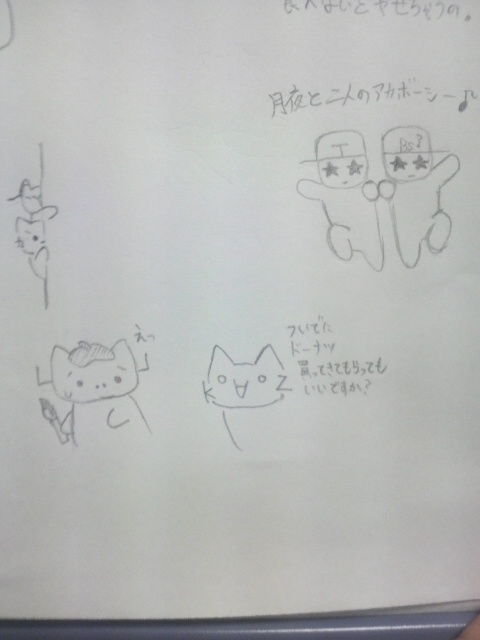 食べないとやせちゃうの。
月夜と二人のアカボーシー♪
T
BS?
えっ
K
Z
ついでに
ドーナツ
買ってきてもらっても
いいですか?